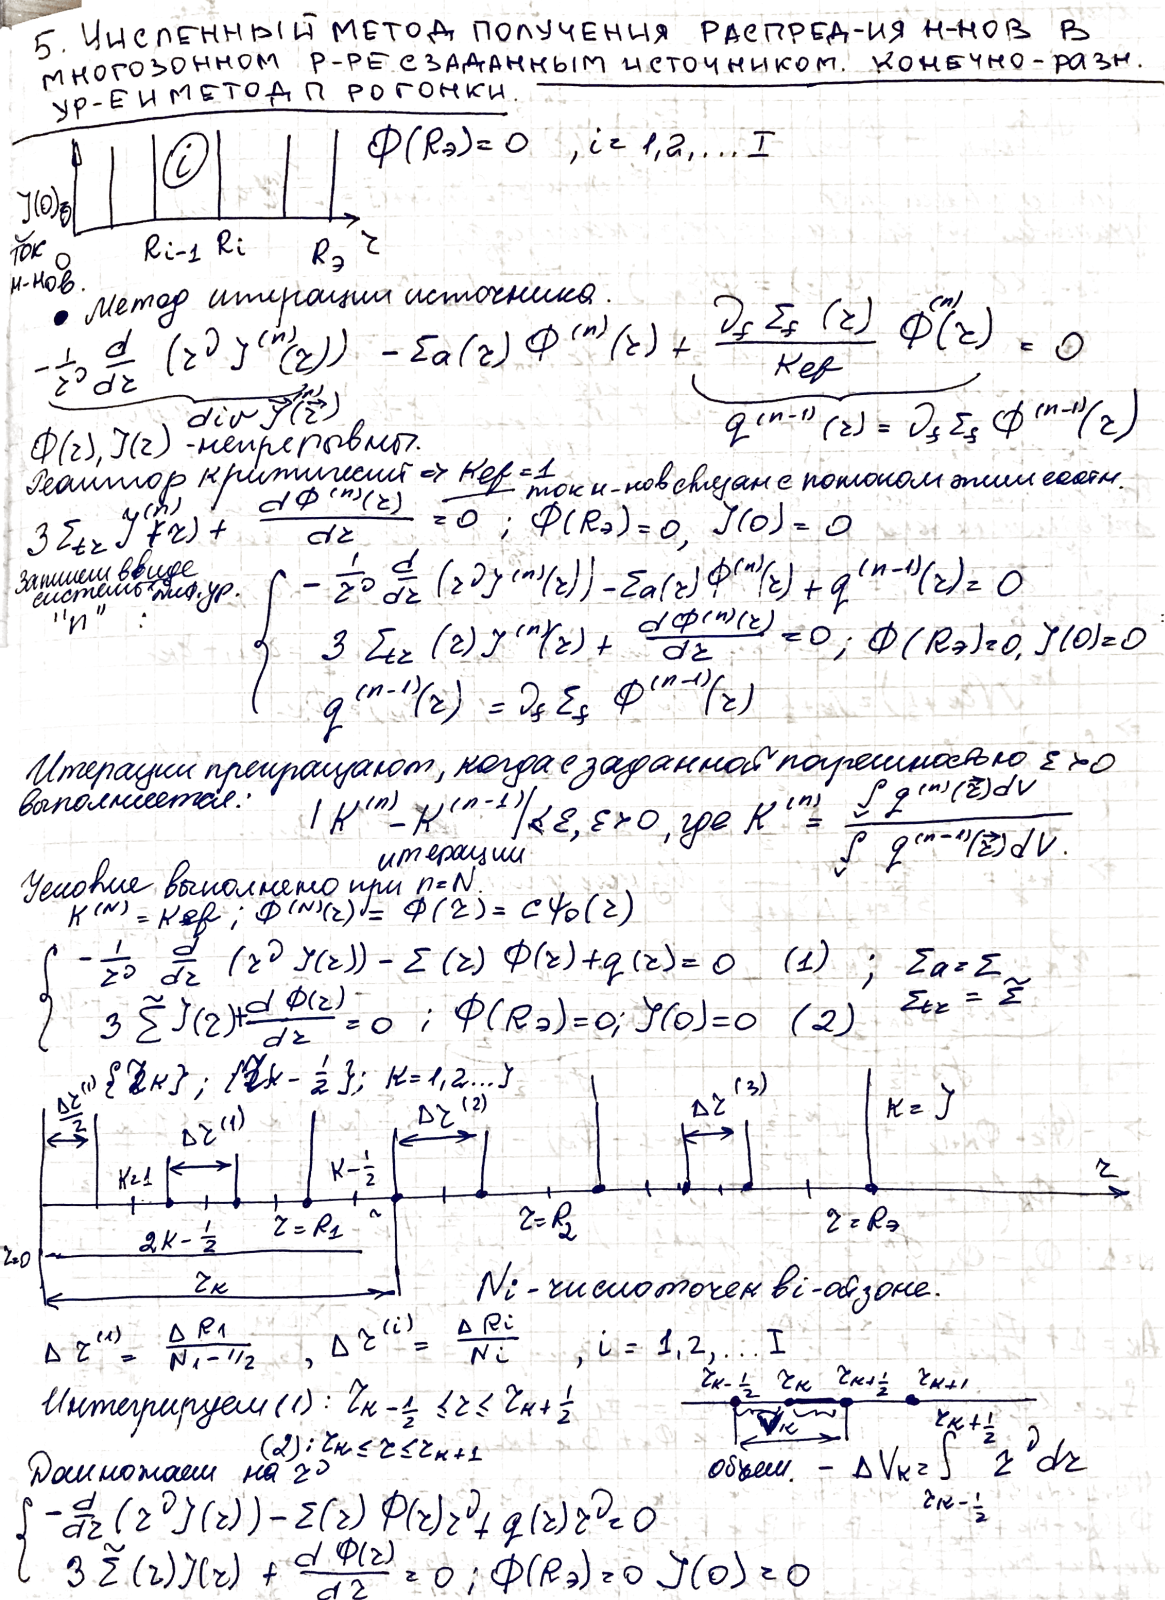 5. ЧИСЛЕННЫЙ МЕТОД ПОЛУЧЕНИЯ РАСПРЕД-ИЯ Н-НОВ В
МНОГОЗОННОМ Р-РЕ С ЗАДАННЫМ ИСТОЧНИКОМ. КОНЕЧНО-РАЗН.
УР-Е И МЕТОД ПРОГОНКИ.
Ф(Rэ)=0 , i=1,2,...I
i
J(0)=0
ток
н-нов.
0 Ri-1 Ri Rэ r
• Метод итерации источника.
-1/r^ν d/dr (r^ν J^(n)(r)) - Σa(r) Ф^(n)(r) + ν_f Σ_f (r)/Kef Ф^(n)(r) = 0
div J^(n)(r) q^(n-1)(r) = ν_f Σ_f Ф^(n-1)(r)
Ф(r), J(r) - непрерывны.
Реактор критический ⇒ Kef=1
ток н-нов связан с потоком этим соотн.
3Σtr J^(n)(r) + dФ^(n)(r)/dr = 0 ; Ф(Rэ)=0, J(0)=0
Запишем в виде
системы диф. ур.
"n" :
-1/r^ν d/dr (r^ν J^(n)(r)) - Σa(r)Ф^(n)(r) + q^(n-1)(r) = 0
3 Σtr (r) J^(n)(r) + dФ^(n)(r)/dr = 0 ; Ф(Rэ)=0, J(0)=0
q^(n-1)(r) = ν_f Σ_f Ф^(n-1)(r)
Итерации прекращают, когда с заданной погрешностью ε>0
выполняется:
|K^(n) - K^(n-1)| < ε, ε>0, где K^(n) = ∫_V q^(n)(r)dV / ∫_V q^(n-1)(r)dV.
итерации
Условие выполнено при n=N.
K^(N) = Kef ; Ф^(N)(r) = Ф(r) = cψ0(r)
-1/r^ν d/dr (r^ν J(r)) - Σ(r) Ф(r) + q(r) = 0 (1) ; Σa = Σ
Σtr = Σ̃
3 Σ̃ J(r) + dФ(r)/dr = 0 ; Ф(Rэ)=0; J(0)=0 (2)
{rк} ; {rк-1/2}; К=1,2...J
Δr^(1)/2 Δr^(1) Δr^(2) Δr^(3) К=J
К=1 К-1/2 r
r=R1 r=R2 r=Rэ
r=0 rк-1/2
rк
Ni - число точек в i-ой зоне.
Δr^(1) = ΔR1/(N1-1/2) , Δr^(i) = ΔRi/Ni , i=1,2,...I
rк-1/2 rк rк+1/2 rк+1
Интегрируем (1): rк-1/2 ≤ r ≤ rк+1/2
Vк
(2): rк ≤ r ≤ rк+1
объем. - ΔVк = ∫_{rк-1/2}^{rк+1/2} r^ν dr
Домножаем на r^ν
-d/dr (r^ν J(r)) - Σ(r) Ф(r) r^ν + q(r) r^ν = 0
3 Σ̃(r) J(r) + dФ(r)/dr = 0 ; Ф(Rэ)=0 J(0)=0